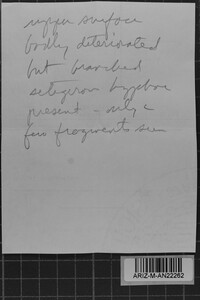 upper surface
badly deteriorated
but branched
setiform hyphae
present - only a
few fragments seen
ARIZ-M-AN22262